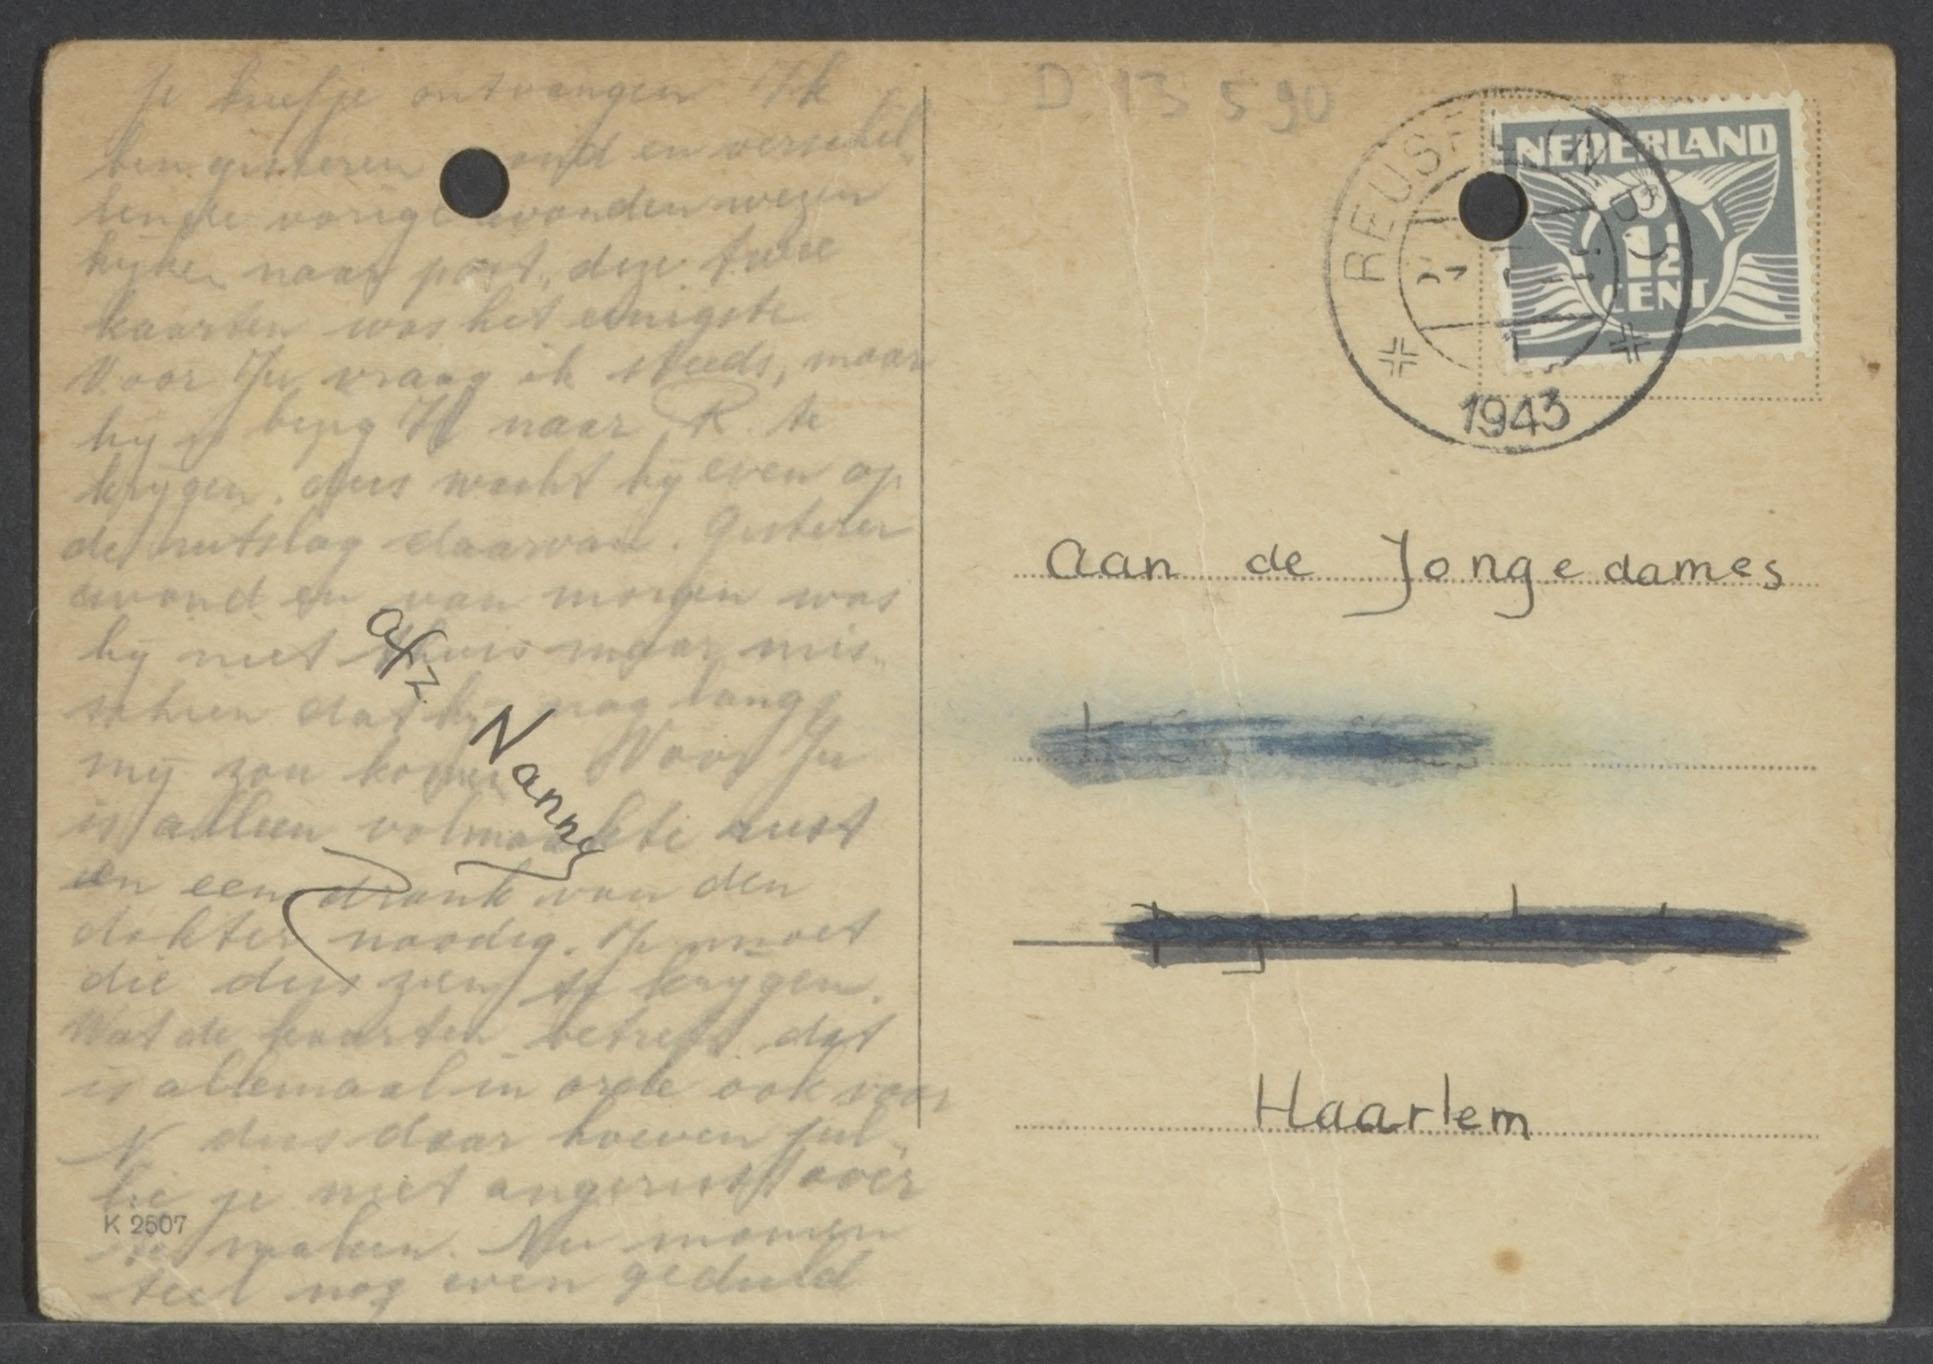 Je briefje ontvangen Ik
ben gisteren avond en verschil-
lende vorige avonden wezen
kijken naar post, deze twee
kaarten was het eenigste.
Voor Ju vraag ik steeds, maar
hij is bezig naar R. te
krijgen, dus wacht hij even op
de uitslag daarvan. Gisteren
avond en van morgen was
hij niet thuis maar mis-
schien dat hij nog langs
mij zou komen. Voor Ju
is alleen volmaakte rust
en een drank van den
dokter noodig. Je moet
die dus zien te krijgen.
Wat de kaarten betreft dat
is allemaal in orde ook voor
N dus daar hoeven jul-
lie je niet ongerust over
te maken. Nu momen
teel nog even geduld
afz. Nanny
K 2507
D 13 590
NEDERLAND
1½
CENT
1943
Aan de Jongedames
Haarlem